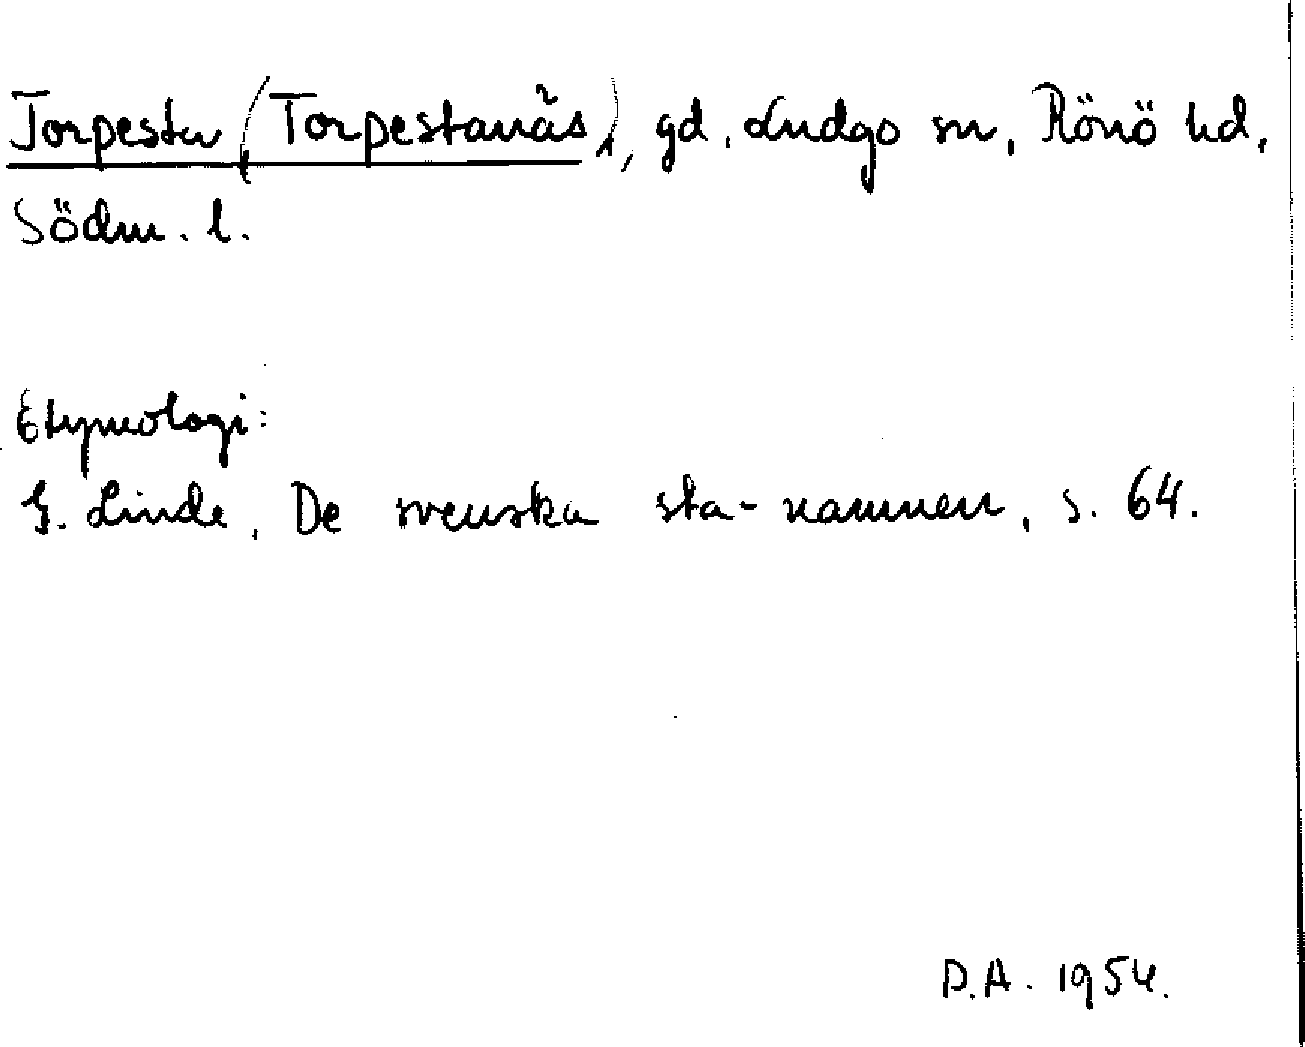 Torpesta (Torpestanäs), gd, Ludgo sn, Rönö hd,
Södm. l.
Etymologi:
G. Linde, De svenska sta-namnen, s. 64.
D.A. 1954.